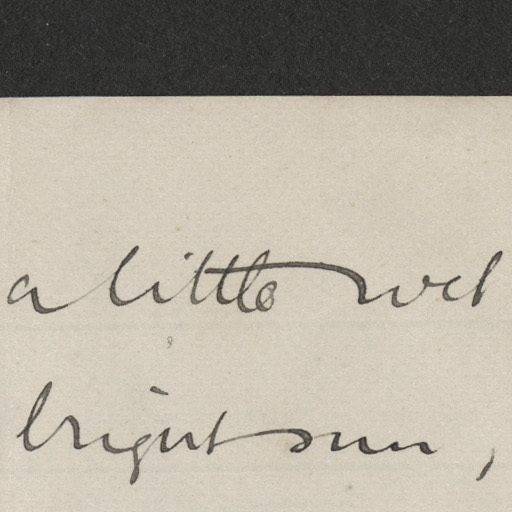 a little wet
bright sun,